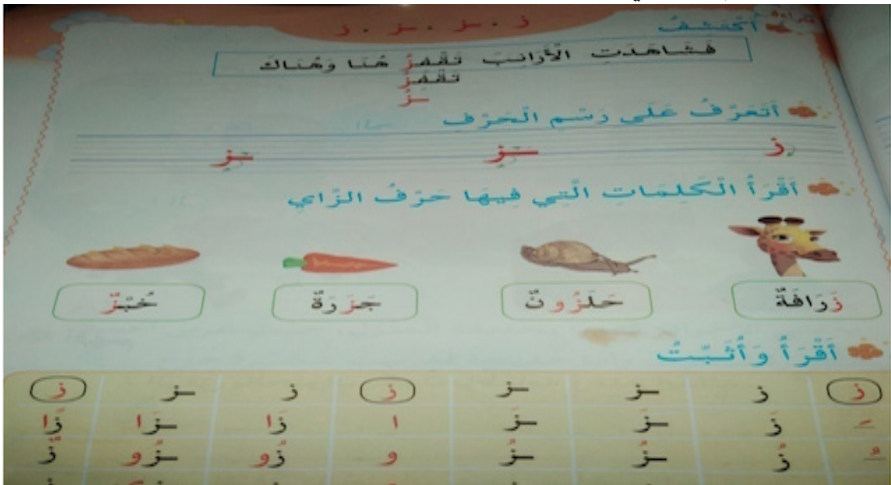 ز . ـز . ـز . ز
أَكْتَشِفُ
فَشَاهَدَتِ الْأَرَانِبَ تَقْفِزُ هُنَا وَهُنَاكَ
تَقْفِزُ
ـزُ
أَتَعَرَّفُ عَلَى رَسْمِ الْحَرْفِ
ز ـز ـز
أَقْرَأُ الْكَلِمَاتِ الَّتِي فِيهَا حَرْفُ الزَّايِ
زَرَافَةٌ حَلَزُونٌ جَزَرَةٌ خُبْزٌ
أَقْرَأُ وَأُثَبِّتُ
ز ز ـز ـز ز ز ـز ز
ـَ زَ ـزَ ـزَ ا زَا ـزَا زَّا
ـُ زُ ـزُ ـزُ و زُو ـزُو